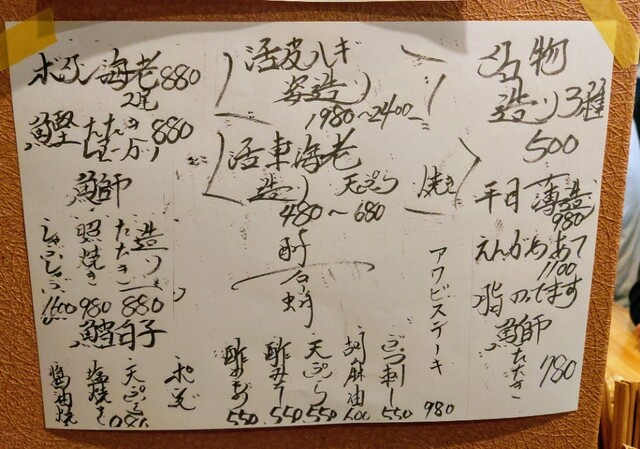 ボタン海老880
2尾
鰹たたき 880
鰤
造り
たたき 880
照焼き 980
しゃぶしゃぶ 1100
鱈白子
ポン酢
天ぷら
塩焼き
醤油焼
活皮ハギ
姿造り
1980〜2400
活車海老
造り 天ぷら 焼き
480〜680
酢
ぶつ刺し 550
胡麻油 600
天ぷら 550
酢みそ 550
550
アワビステーキ 980
名物
造り3種
500
平日 薄造
980
えんがわあて
1100
脂のってます
鰤たたき
780